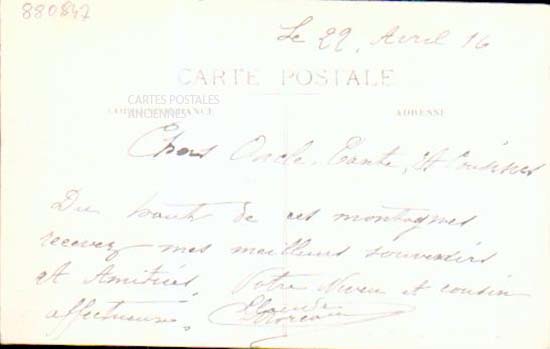 880847
Le 29, Avril 16
CARTE POSTALE
CARTES POSTALES
ANCIENNES
CORRESPONDANCE
ADRESSE
Chers Oncle, Tante, et Cousines
Du haut de ces montagnes
recevez mes meilleurs souvenirs
et Amitiés. Votre Neveu et cousin
affectueux.
Moreau